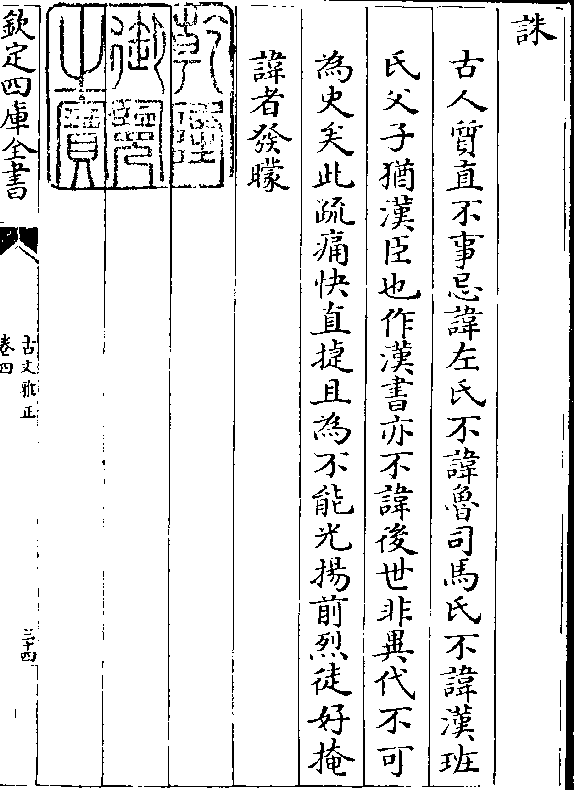 誅
古人質直不事忌諱左氏不諱魯司馬氏不諱漢班
氏父子猶漢臣也作漢書亦不諱後世非異代不可
為史矣此疏痛快直捷且為不能光揚前烈徒好掩
諱者發矇
乾隆
御覽
之寶
欽定四庫全書
古文雅正
卷四
三十四